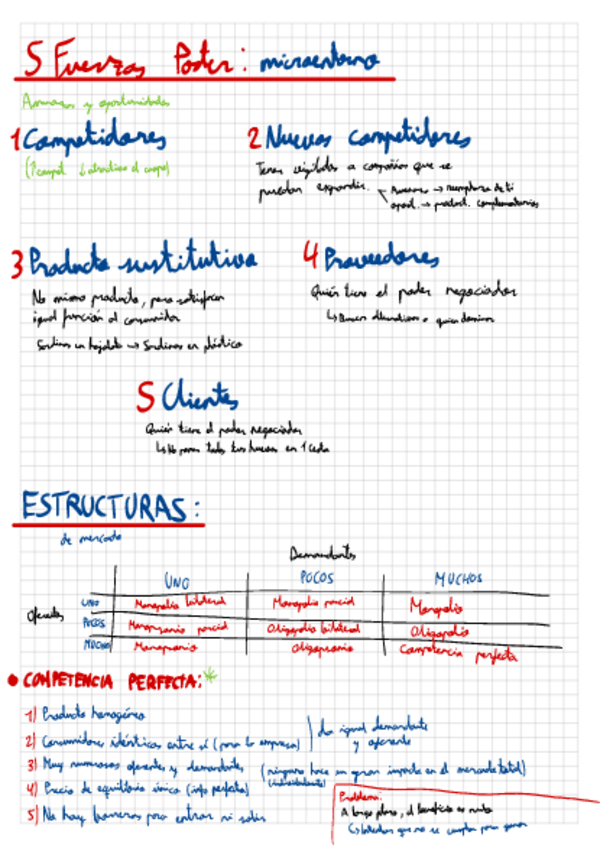 5 Fuerzas Porter: microentorno
Amenazas y oportunidades
1 Competidores
(↑compet ↓atractivo el campo)
2 Nuevos competidores
Tener vigilados a compañías que se
puedan expandir.
Amenaz → reemplazo de ti
oport. → product. complementarios
3 Producto sustitutivo
No mismo producto, pero satisfacen
igual función al consumidor
Sardinas en hojalata → Sardinas en plástico
4 Proveedores
Quién tiene el poder negociador
↳ Buscar alternativas o quien domina
5 Clientes
Quién tiene el poder negociador
↳ No poner todos tus huevos en 1 cesta
ESTRUCTURAS:
de mercado
Demandantes
UNO POCOS MUCHOS
Oferentes
UNO Monopolio bilateral Monopolio parcial Monopolio
POCOS Monopsonio parcial Oligopolio bilateral Oligopolio
MUCHOS Monopsonio Oligopsonio Competencia perfecta
• COMPETENCIA PERFECTA:*
1) Producto homogéneo
2) Consumidores idénticos entre sí (para la empresa)
Da igual demandante
y oferente
3) Muy numerosos oferentes y demandantes (ninguno hace un gran impacto en el mercado total)
(individualmente)
4) Precio de equilibrio único (info perfecta)
5) No hay barreras para entrar ni salir
Problema:
A largo plazo, el beneficio es nulo
que no se cumpla para ganar